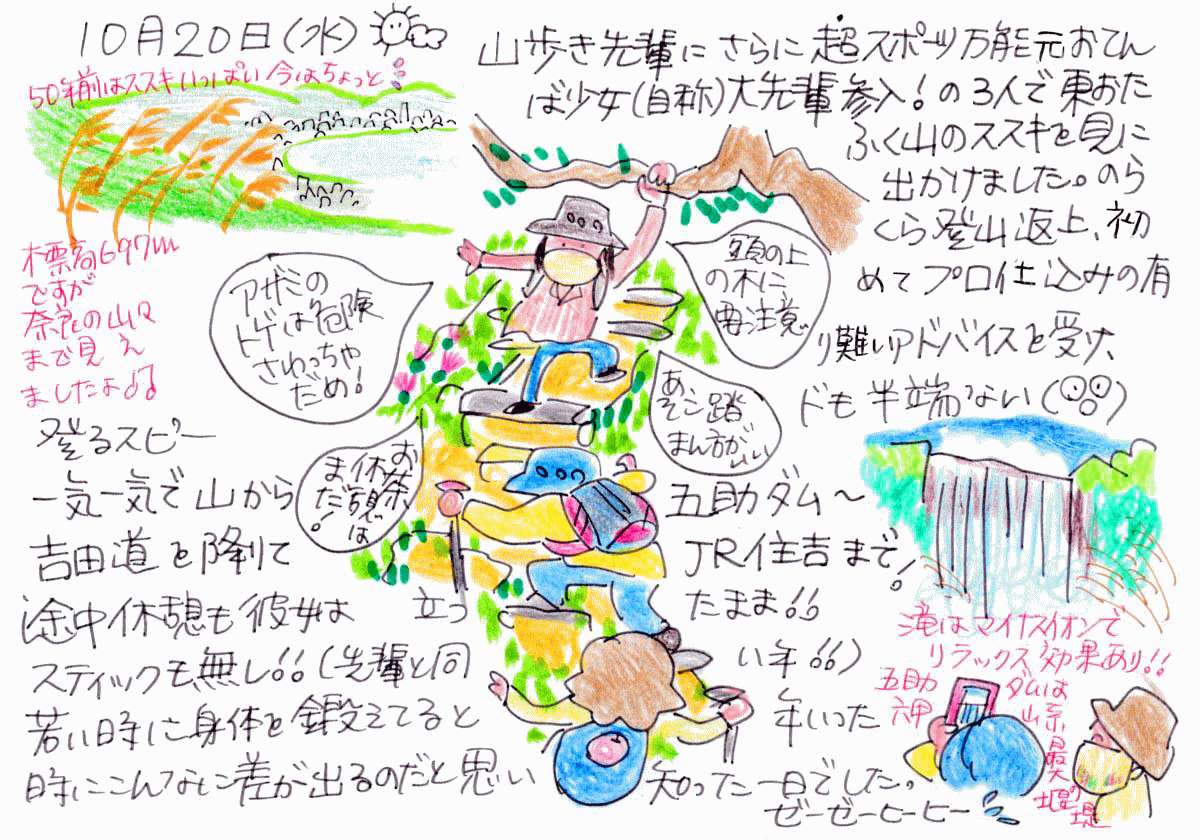 10月20日(水)
山歩き先輩にさらに超スポーツ万能元おてん
ば少女(自称)大先輩参入!の3人で東おた
ふく山のススキを見に
出かけました。のら
くら登山返上、初
めてプロ仕込みの有
り難いアドバイスを受け、
登るスピードも半端ない
一気一気で山から五助ダム〜
吉田道を降りてJR住吉まで!
途中休憩も彼女は立ったまま!!
スティックも無し!!(先輩と同い年!!)
若い時に身体を鍛えてると年いった
時にこんなに差が出るのだと思い知った一日でした。
ゼーゼーヒーヒー
50年前はススキいっぱい今はちょっと
標高697m
ですが
奈良の山々
まで見え
ましたよ!!
アザミの
トゲは危険
さわっちゃ
だめ!
頭の上
の木に
要注意
あそこ踏
まん方が
いい
お茶
休憩は
まだ!
滝はマイナスイオンで
リラックス効果あり!!
五助ダムは
六甲山系
最大
堰堤